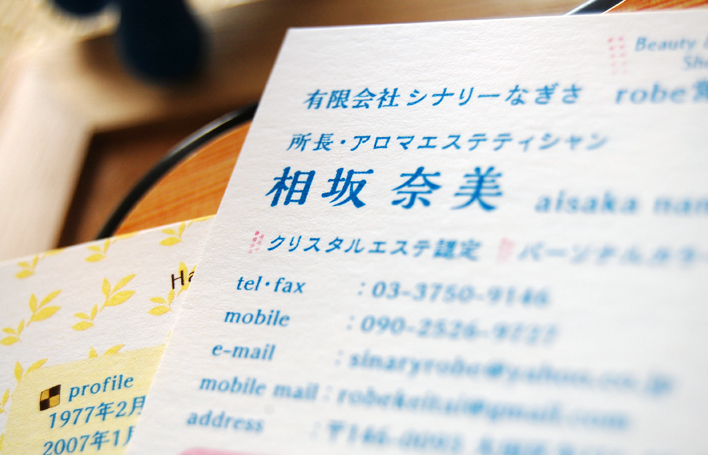 Beauty
有限会社 シナリーなぎさ robe
所長・アロマエステティシャン
相坂 奈美 aisaka
クリスタルエステ認定 パーソナルカラー
tel・fax : 03-3750-9146
mobile : 090-2526-9727
e-mail : sinaryrobe@yahoo.co.jp
mobile mail : robekeitai@gmail.com
address : 〒146-0093
profile
1977年2月
2007年1月